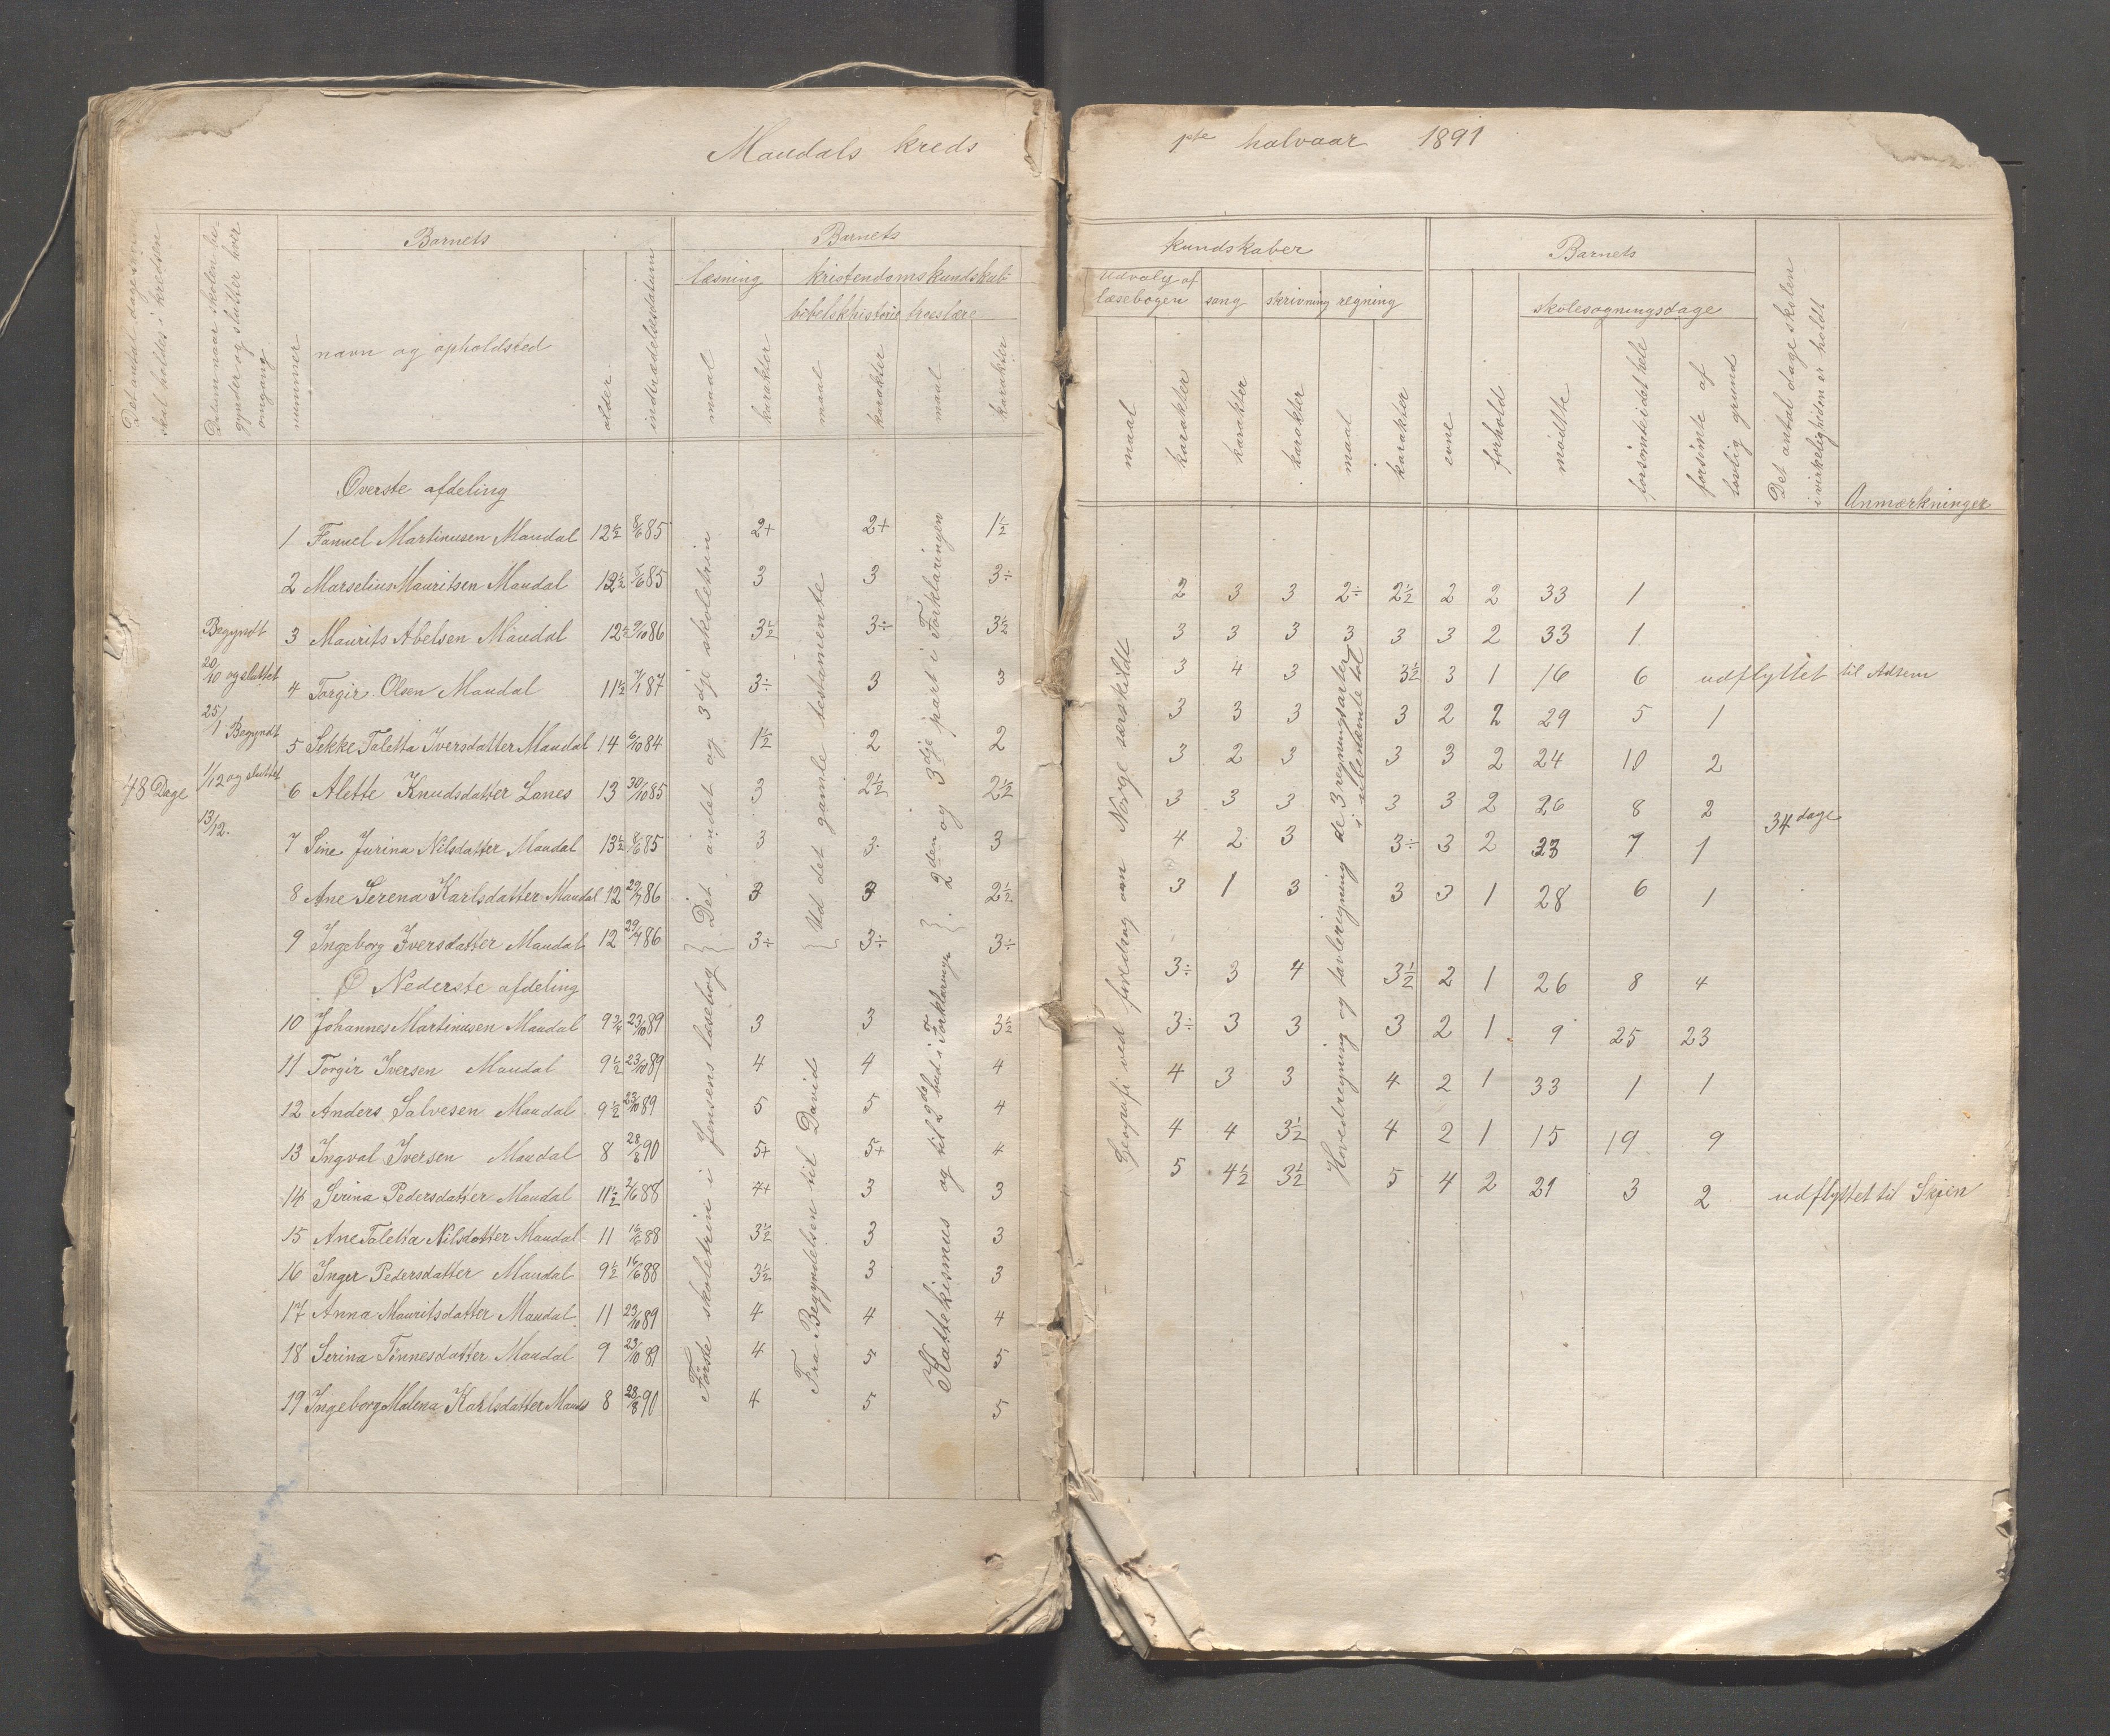 Maudals kreds
Det antal dage som skal holdes i kredsen
Datum naar skolen begynder og slutter hver omgang
Barnets
nummer
navn og opholdsted
alder
indtrædelsesdatum
Barnets
læsning
maal
karakter
kristendomskundskab
bibelskhistorie
maal
karakter
troeslære
maal
karakter
48 Dage
Begyndt
20/10 og sluttet
25/1 Begyndt
1/12 og sluttet
13/12.
Øverste afdeling
1 Fanuel Martinusen Maudal 12½ 8/6 85 2+ 2+ 1½
2 Marselius Mauritsen Maudal 12½ 8/6 85 3 3 3÷
3 Maurits Abelsen Maudal 12½ 9/10 86 3½ 3÷ 3½
4 Torgir Olsen Maudal 11½ 7/1 87 3÷ 3 3
5 Sekke Taletta Iversdatter Maudal 14 6/10 84 1½ 2 2
6 Alette Knudsdatter Lanes 13 30/10 85 3 2½ 2½
7 Sine Jurina Nilsdatter Maudal 13½ 8/6 85 3 3 3
8 Ane Serena Karlsdatter Maudal 12 29/7 86 3 3 2½
9 Ingeborg Iversdatter Maudal 12 29/7 86 3÷ 3÷ 3÷
Nederste afdeling
10 Johannes Martinusen Maudal 9¾ 23/10 89 3 3 3½
11 Torgir Iversen Maudal 9½ 23/10 89 4 4 4
12 Anders Salvesen Maudal 9½ 23/10 89 5 5 4
13 Ingval Iversen Maudal 8 28/8 90 5+ 5+ 4
14 Serina Pedersdatter Maudal 11½ 88 4+ 3 3
15 Ane Taletta Nilsdatter Maudal 11 16/6 88 3½ 3 3
16 Inger Pedersdatter Maudal 9½ 16/6 88 3½ 3 3
17 Anna Mauritsdatter Maudal 11 23/10 89 4 4 4
18 Serina Tønnesdatter Maudal 9 23/10 89 4 5 5
19 Ingeborg Malena Karlsdatter Maudal 8 28/8 90 4 5 5
Første skoletrin i Jensens læsebog } Det andet og 3dje skoletrin
Fra Begyndelsen til David } Ud det gamle testamente
Kattekismus og til 2det bud i Forklaringe }. 2den og 3dje part i Forklaringen
1ste halvaar 1891
kundskaber
Udvalg af læsebogen
maal
karakter
sang
karakter
skrivning
karakter
regning
maal
karakter
Barnets
evne
forhold
skolesøgningsdage
mødte
forsømte i det hele
forsømte af lovlig grund
Det antal dage skolen i virkeligheden er holdt
Anmærkninger
2 3 3 2÷ 2½ 2 2 33 1
3 3 3 3 3 3 2 33 1
3 4 3 3½ 3 1 16 6 udflyttet til
3 3 3 3 2 2 29 5 1
3 2 3 3 3 2 24 10 2
3 3 3 3 3 2 26 8 2 34 dage
4 2 3 3÷ 3 2 23 7 1
3 1 3 3 3 1 28 6 1
3÷ 3 4 3½ 2 1 26 8 4
3÷ 3 3 3 2 1 9 25 23
4 3 3 4 2 1 33 1 1
4 4 3½ 4 2 1 15 19 9
5 4½ 3½ 5 4 2 21 3 2 udflyttet til Skjen
Geografi ved foredrag om Norge særskildt
Hovedregning og tavleregning de 3 regningsarter i ubenævnte tal